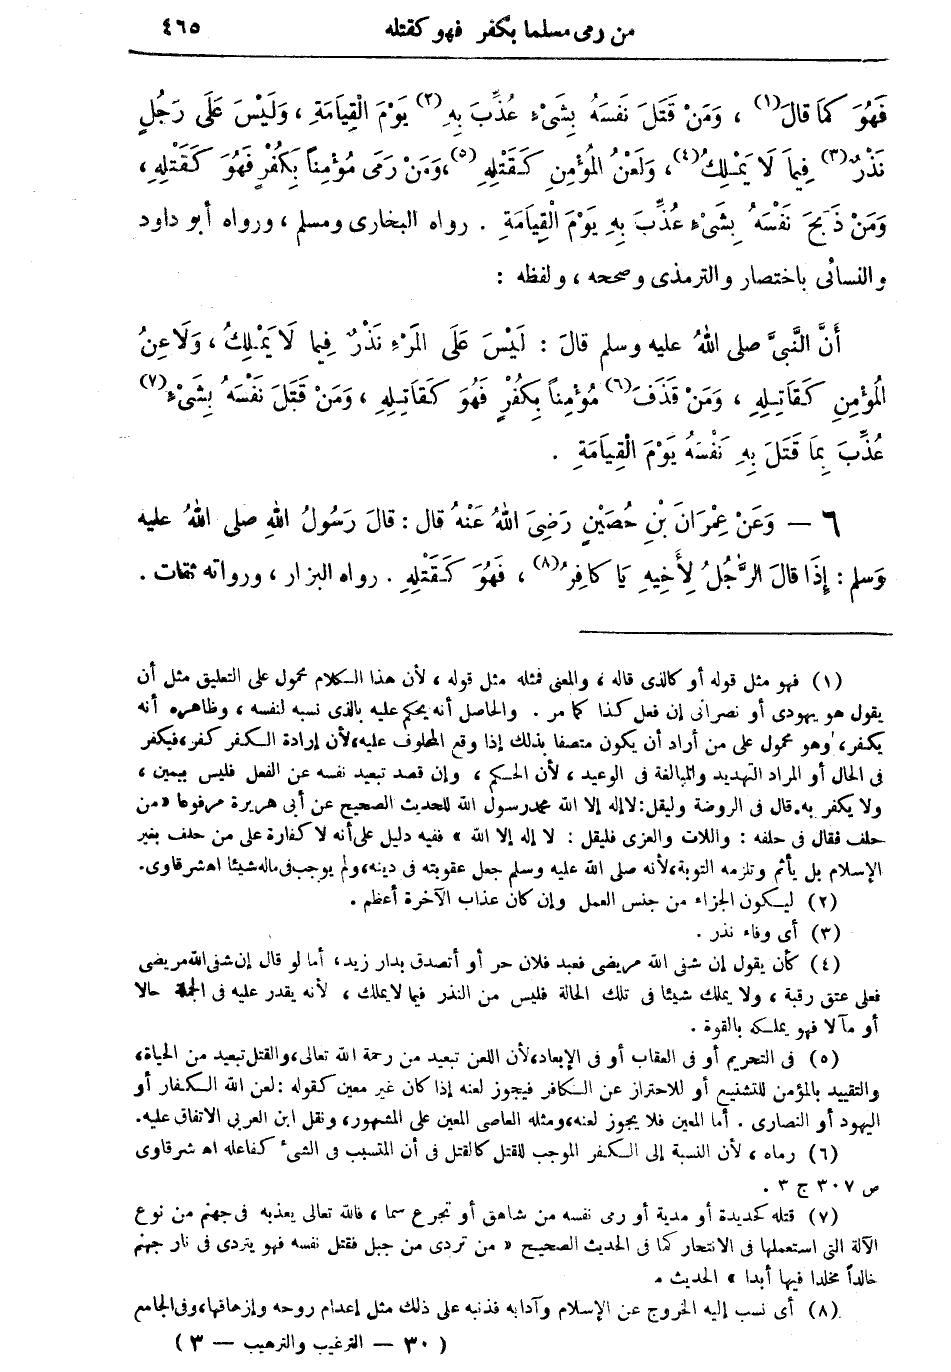 من رمى مسلما بكفر فهو كقتله ٤٦٥
فَهُوَ كَمَا قَالَ(١) ، وَمَنْ قَتَلَ نَفْسَهُ بِشَىْءٍ عُذِّبَ بِهِ(٢) يَوْمَ الْقِيَامَةِ ، وَلَيْسَ عَلَى رَجُلٍ
نَذْرٌ(٣) فِيمَا لَا يَمْلِكُ(٤)، وَلَعْنُ الْمُؤْمِنِ كَقَتْلِهِ(٥)،وَمَنْ رَمَى مُؤْمِناً بِكُفْرٍ فَهُوَ كَقَتْلِهِ ،
وَمَنْ ذَبَحَ نَفْسَهُ بِشَىْءٍ عُذِّبَ بِهِ يَوْمَ الْقِيَامَةِ . رواه البخارى ومسلم ، ورواه أبو داود
والنسائى باختصار والترمذى وصححه ، ولفظه :
أَنَّ النَّبِىَّ صلى اللهُ عليه وسلم قَالَ : لَيْسَ عَلَى الْمَرْءِ نَذْرٌ فِيمَا لَا يَمْلِكُ ، وَلَاعِنُ
الْمُؤْمِنِ كَقَاتِلِهِ ، وَمَنْ قَذَفَ(٦) مُؤْمِناً بِكُفْرٍ فَهُوَ كَقَاتِلِهِ ، وَمَنْ قَتَلَ نَفْسَهُ بِشَىْءٍ(٧)
عُذِّبَ بِمَا قَتَلَ بِهِ نَفْسَهُ يَوْمَ الْقِيَامَةِ .
٦ — وَعَنْ عِمْرَانَ بْنِ حُصَيْنٍ رَضِىَ اللهُ عَنْهُ قال : قالَ رَسُولُ اللهِ صلى اللهُ عليه
وَسلم : إِذَا قالَ الرَّجُلُ لِأَخِيهِ يَا كافِرُ(٨) ، فَهُوَ كَقَتْلِهِ . رواه البزار ، ورواته ثقات .
(١) فهو مثل قوله أو كالذى قاله ، والمعنى فمثله مثل قوله ، لأن هذا الكلام محمول على التعليق مثل أن
يقول هو يهودى أو نصرانى إن فعل كذا كما مر . والحاصل أنه يحكم عليه بالذى نسبه لنفسه ، وظاهره أنه
يكفر، وهو محمول على من أراد أن يكون متصفا بذلك إذا وقع المحلوف عليه،لأن إرادة الكفر كفر،فيكفر
فى الحال أو المراد التهديد والمبالغة فى الوعيد ، لأن الحكم ، وإن قصد تبعيد نفسه عن الفعل فليس بيمين ،
ولا يكفر به.قال فى الروضة وليقل:لاإله إلا الله محمدرسول الله للحديث الصحيح عن أبى هريرة مرفوعا «من
حلف فقال فى حلفه : واللات والعزى فليقل : لا إله إلا الله » ففيه دليل على أنه لا كفارة على من حلف بغير
الإسلام بل يأثم وتلزمه التوبة،لأنه صلى الله عليه وسلم جعل عقوبته فى دينه،ولم يوجب فى ماله شيئا اه شرقاوى.
(٢) ليكون الجزاء من جنس العمل وإن كان عذاب الآخرة أعظم .
(٣) أى وفاء نذر .
(٤) كأن يقول إن شفى الله مريضى فعبد فلان حر أو أتصدق بدار زيد، أما لو قال إن شفى الله مريضى
فعلى عتق رقبة ، ولا يملك شيئا فى تلك الحالة فليس من النذر فيما لايملك ، لأنه يقدر عليه فى الجملة حالا
أو مآلا فهو يملكه بالقوة .
(٥) فى التحريم أو فى العقاب أو فى الإبعاد،لأن اللعن تبعيد من رحمة الله تعالى،والقتل تبعيد من الحياة،
والتقييد بالمؤمن للتشنيع أو للاحتراز عن الكافر فيجوز لعنه إذا كان غير معين كقوله :لعن الله الكفار أو
اليهود أو النصارى . أما المعين فلا يجوز لعنه،ومثله العاصى المعين على المشهور، ونقل ابن العربى الاتفاق عليه.
(٦) رماه ، لأن النسبة إلى الكفر الموجب للقتل كالقتل فى أن المتسبب فى الشىء كفاعله اه شرقاوى
ص ٣٠٧ ج ٣ .
(٧) قتله كحديدة أو مدية أو رمى نفسه من شاهق أو تجرع سما ، فالله تعالى يعذبه فى جهنم من نوع
الآلة التى استعملها فى الانتحار كما فى الحديث الصحيح « من تردى من جبل فقتل نفسه فهو يتردى فى نار جهنم
خالداً مخلدا فيها أبدا » الحديث .
(٨) أى نسب إليه الخروج عن الإسلام وآدابه فذنبه على ذلك مثل إعدام روحه وإزهاقها،وفى الجامع
( ٣٠ — الترغيب والترهيب — ٣ )